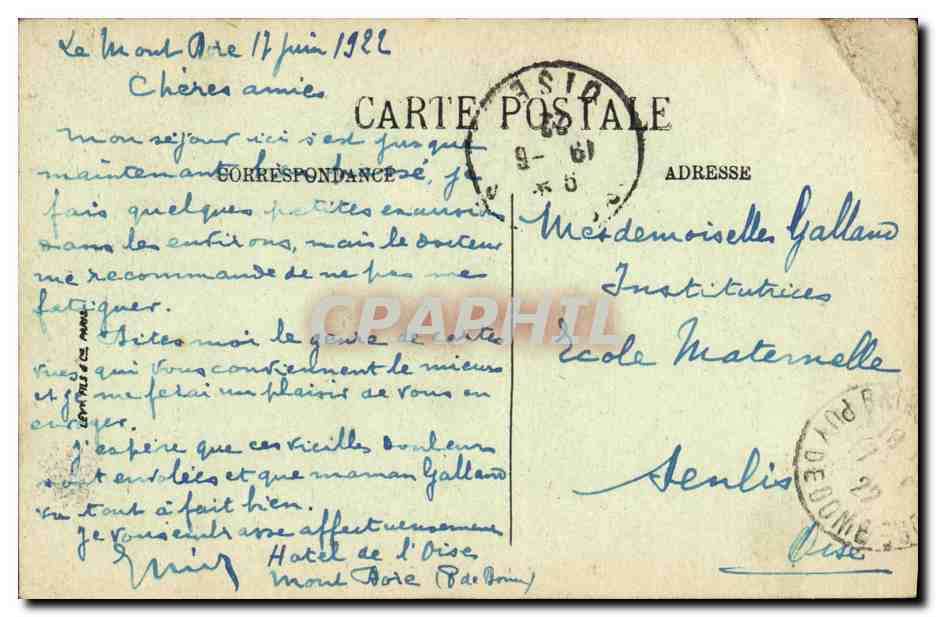 Le Mont Dore 17 juin 1922
Chères amies
CARTE POSTALE
CORRESPONDANCE
Mon séjour ici s'est jusque
maintenant bien passé, je
fais quelques petites excursions
dans les environs, mais le docteur
me recommande de ne pas me
fatiguer.
Dites moi le genre de cartes
vues qui vous conviennent le mieux
et je me ferai un plaisir de vous en
envoyer.
J'espère que ces vieilles douleurs
sont envolées et que maman Galland
va tout à fait bien.
Je vous embrasse affectueusement
Hotel de l'Oise
Mont Dore (P de Dome)
ADRESSE
Mesdemoiselles Galland
Institutrices
Ecole Maternelle
Senlis
Oise
OISE
19 - 6
22
PUY DE DOME
22
LEVY FILS & Cie PARIS
CPAPHIL